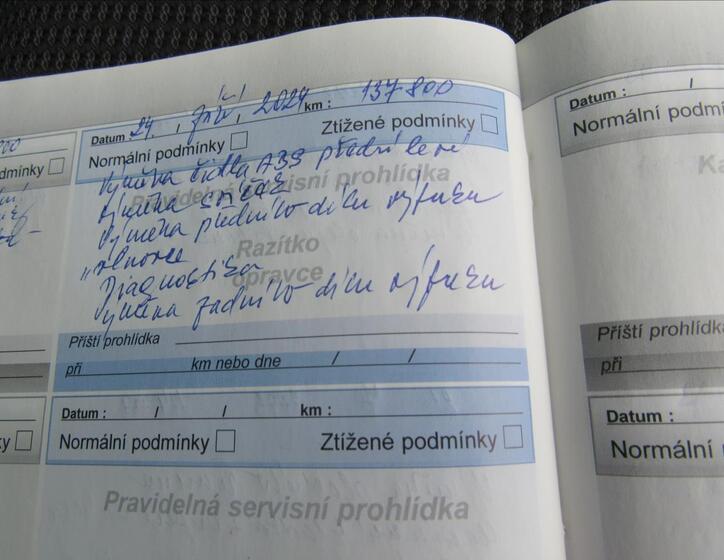 Datum 24, září, 2024 km: 137 800
Normální podmínky Ztížené podmínky
Výměna čidla ABS přední levé
Výměna svíček
Pravidelná servisní prohlídka
Výměna předního dílu výfuku
Razítko
opravce
Diagnostika
Výměna zadního dílu výfuku
Příští prohlídka
při km nebo dne / /
Datum : / / km :
Normální podmínky Ztížené podmínky
Pravidelná servisní prohlídka
dmínky
Datum : /
Normální podm
Ka
Příští prohlídka
při
Datum :
Normální